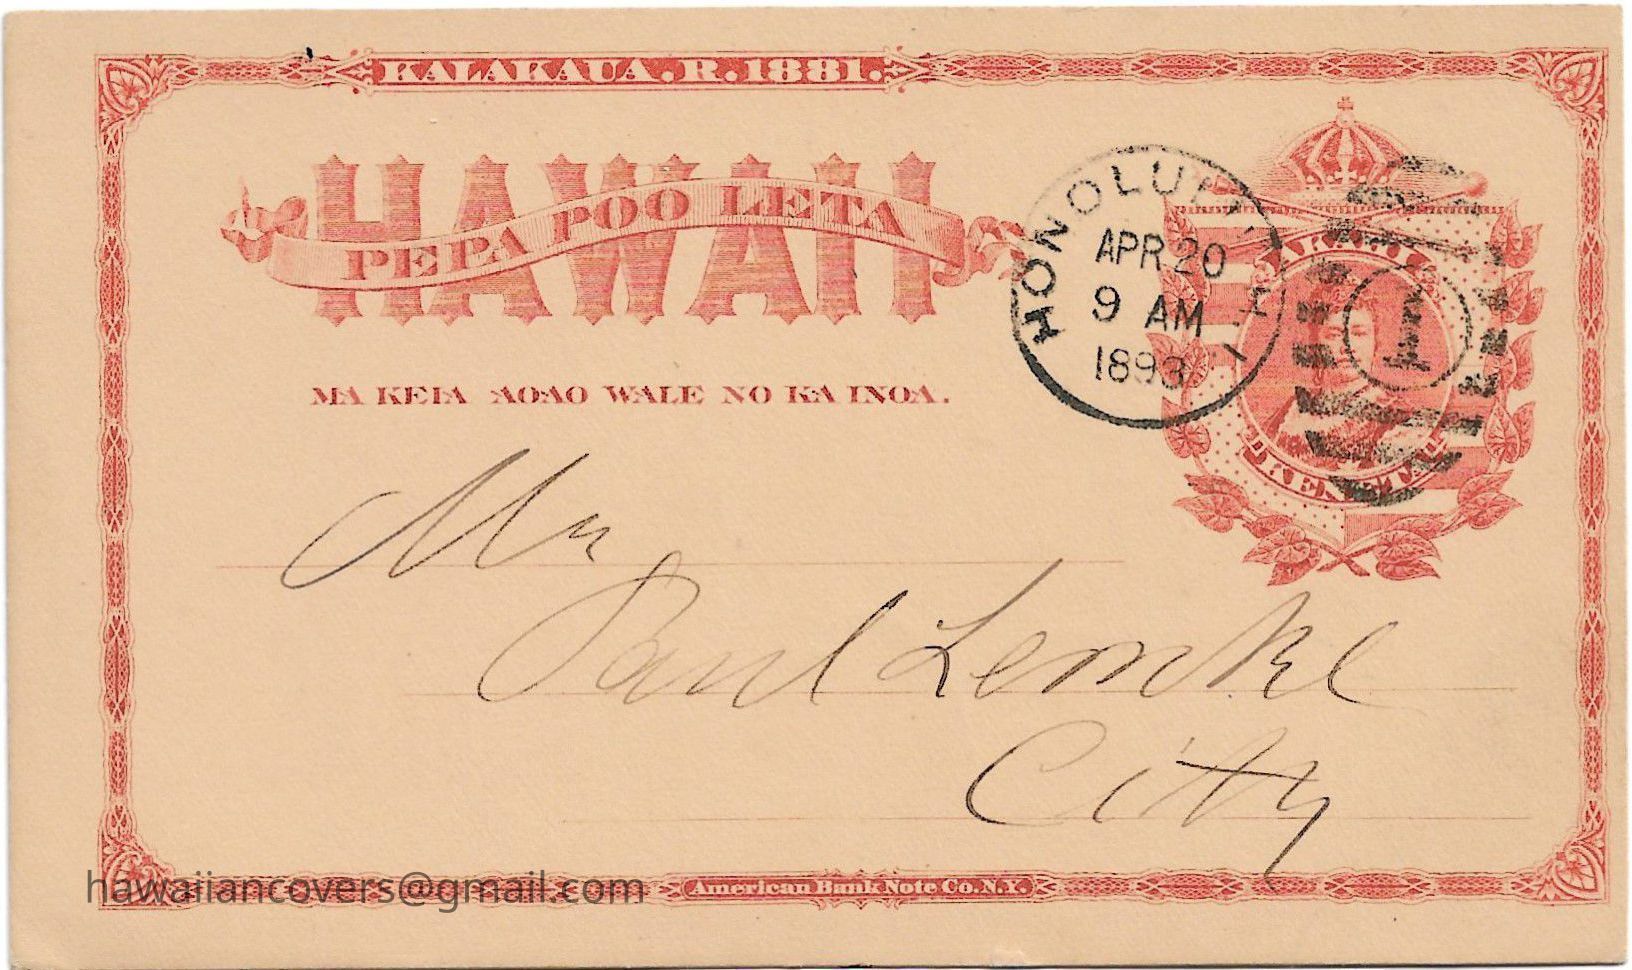 KALAKAUA.R.1881.
HAWAII
PEPA POO LETA
MA KEIA AOAO WALE NO KA INOA.
HONOLULU H.I.
APR 20
9 AM
1893
1
AKAHI
KENETA
Mr
Paul Lemke
City
American Bank Note Co. N.Y.
hawaiiancovers@gmail.com